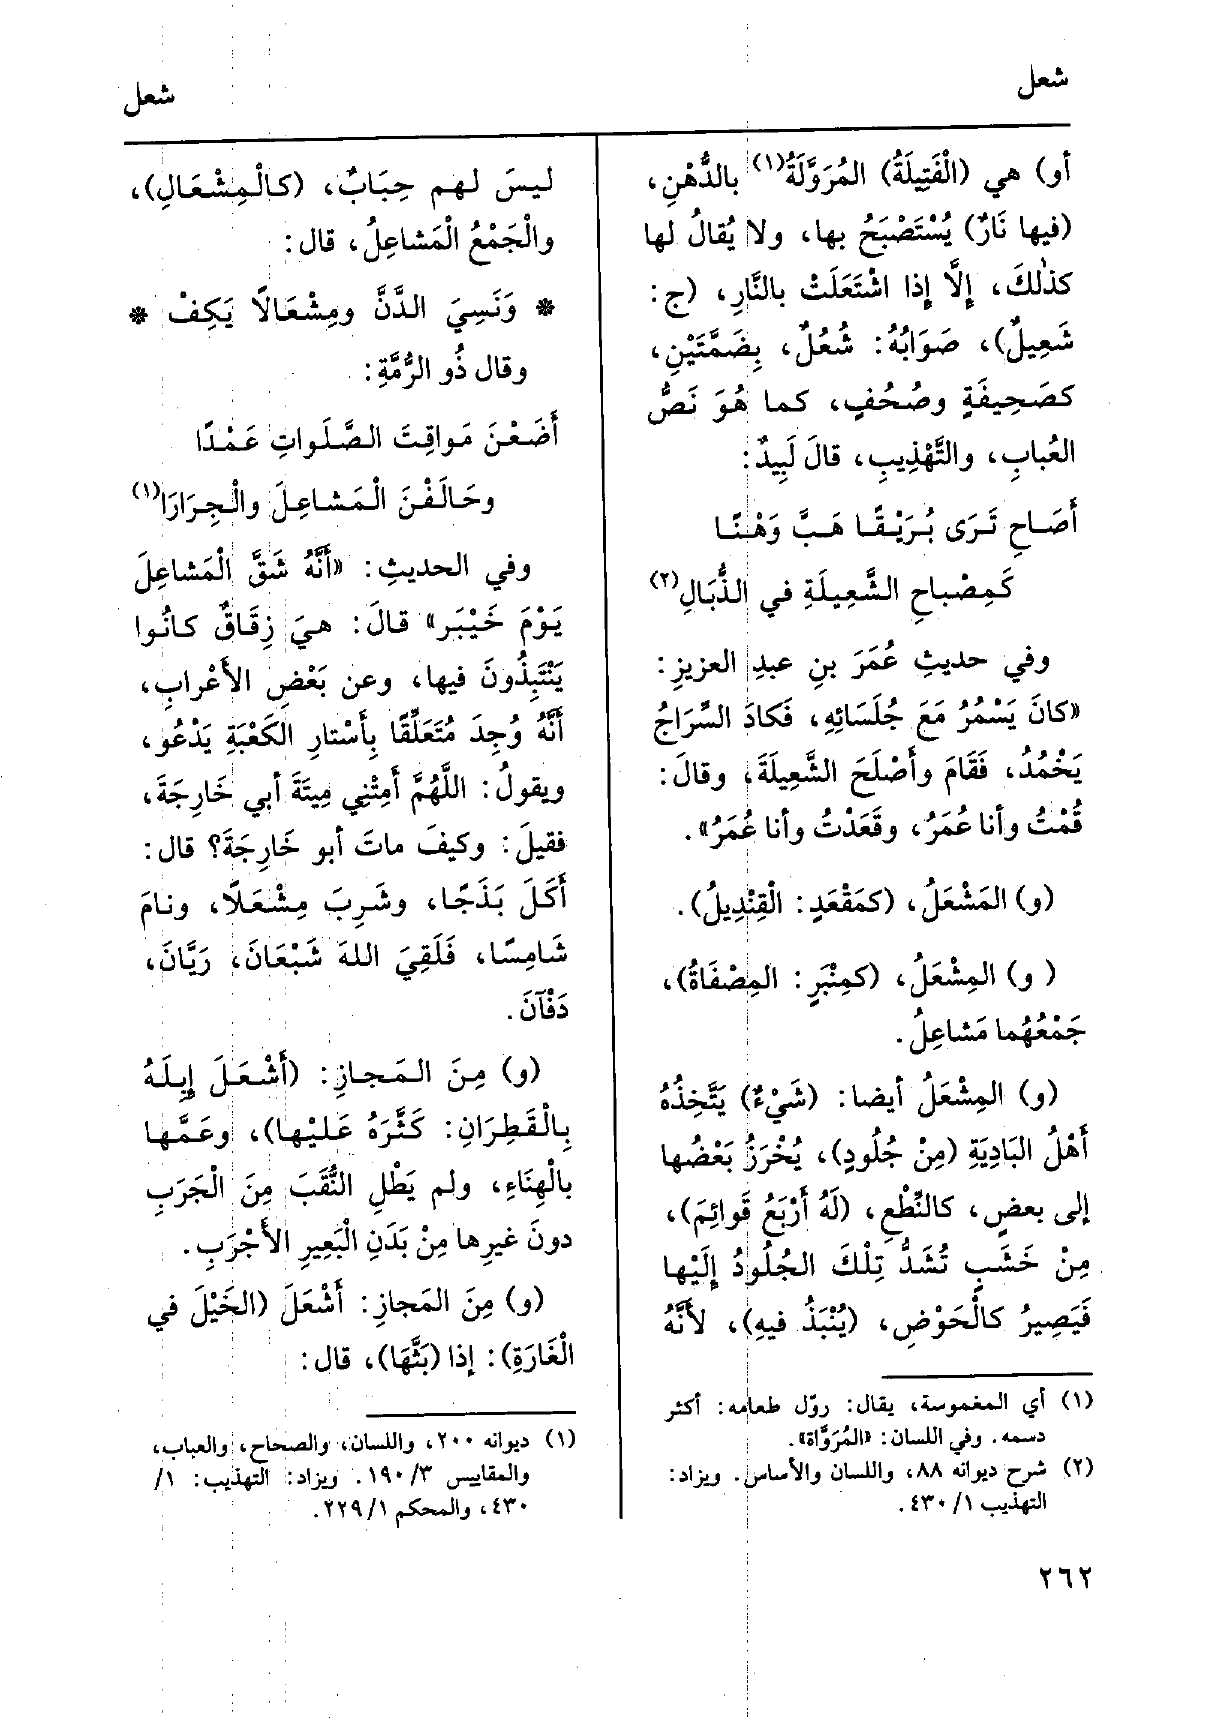 شعل
شعل
أو) هي (الْفَتِيلَةُ) المُرَوَّلَةُ(١) بالدُّهْنِ،
(فيها نَارٌ) يُسْتَصْبَحُ بها، ولا يُقالُ لها
كذٰلكَ، إِلَّا إذا اشْتَعَلَتْ بالنَّارِ، (ج:
شَعِيلٌ)، صَوَابُهُ: شُعُلٌ، بِضَمَّتَيْنِ،
كصَحِيفَةٍ وصُحُفٍ، كما هُوَ نَصُّ
العُبابِ، والتَّهْذِيبِ، قالَ لَبِيدٌ:
أَصَاحِ تَرَى بُرَيْقًا هَبَّ وَهْنًا
كَمِصْباحِ الشَّعِيلَةِ في الذُّبَالِ(٢)
وفي حديثِ عُمَرَ بنِ عبدِ العزيزِ:
«كانَ يَسْمُرُ مَعَ جُلَسَائِهِ، فَكادَ السِّرَاجُ
يَخْمُدُ، فَقَامَ وأَصْلَحَ الشَّعِيلَةَ، وقالَ:
قُمْتُ وأنا عُمَرُ، وقَعَدْتُ وأنا عُمَرُ».
(و) المَشْعَلُ، (كمَقْعَدٍ: الْقِنْدِيلُ).
( و) المِشْعَلُ، (كمِنْبَرٍ: المِصْفَاةُ)،
جَمْعُهُما مَشاعِلُ.
(و) المِشْعَلُ أيضا: (شَيْءٌ) يَتَّخِذُهُ
أَهْلُ البَادِيَةِ (مِنْ جُلُودٍ)، يُخْرَزُ بَعْضُها
إلى بعضٍ، كالنِّطْعِ، (لَهُ أَرْبَعُ قَوائِمَ)،
مِنْ خَشَبٍ تُشَدُّ تِلْكَ الجُلُودُ إِلَيْها
فَيَصِيرُ كالْحَوْضِ، (يُنْبَذُ فيهِ)، لأَنَّهُ
(١) أي المغموسة، يقال: روّل طعامه: أكثر
دسمه. وفي اللسان: «المُرَوَّاة».
(٢) شرح ديوانه ٨٨، واللسان والأساس. ويزاد:
التهذيب ٤٣٠/١.
ليسَ لهم حِبَابٌ، (كالْمِشْعَالِ)،
والْجَمْعُ الْمَشاعِلُ، قال:
* وَنَسِيَ الدَّنَّ ومِشْعَالًا يَكِفْ *
وقال ذُو الرُّمَّةِ:
أَضَعْنَ مَواقِتَ الصَّلَواتِ عَمْدًا
وحَالَفْنَ الْمَشاعِلَ والْجِرَارَا(١)
وفي الحديثِ: «أَنَّهُ شَقَّ الْمَشاعِلَ
يَوْمَ خَيْبَر» قالَ: هيَ زِقَاقٌ كانُوا
يَنْتَبِذُونَ فيها، وعن بَعْضِ الأَعْرابِ،
أَنَّهُ وُجِدَ مُتَعَلِّقًا بِأَسْتارِ الكَعْبَةِ يَدْعُو،
ويقولُ: اللَّهُمَّ أَمِتْنِي مِيتَةَ أبي خَارِجَةَ،
فقيلَ: وكيفَ ماتَ أبو خَارِجَةَ؟ قال:
أَكَلَ بَذَجًا، وشَرِبَ مِشْعَلًا، ونامَ
شَامِسًا، فَلَقِيَ اللهَ شَبْعَانَ، رَيَّانَ،
دَفْآنَ.
(و) مِنَ المَجازِ: (أَشْعَلَ إِبِلَهُ
بِالْقَطِرَانِ: كَثَّرَهُ عَليْها)، وعَمَّها
بالْهِنَاءِ، ولم يَطْلِ النُّقَبَ مِنَ الْجَرَبِ
دونَ غيرِها مِنْ بَدَنِ الْبَعِيرِ الأَجْرَبِ.
(و) مِنَ المَجازِ: أَشْعَلَ (الخَيْلَ في
الْغَارَةِ): إذا (بَثَّهَا)، قال:
(١) ديوانه ٢٠٠، واللسان، والصحاح، والعباب،
والمقاييس ١٩٠/٣. ويزاد: التهذيب: ١/
٤٣٠، والمحكم ٢٢٩/١.
٢٦٢